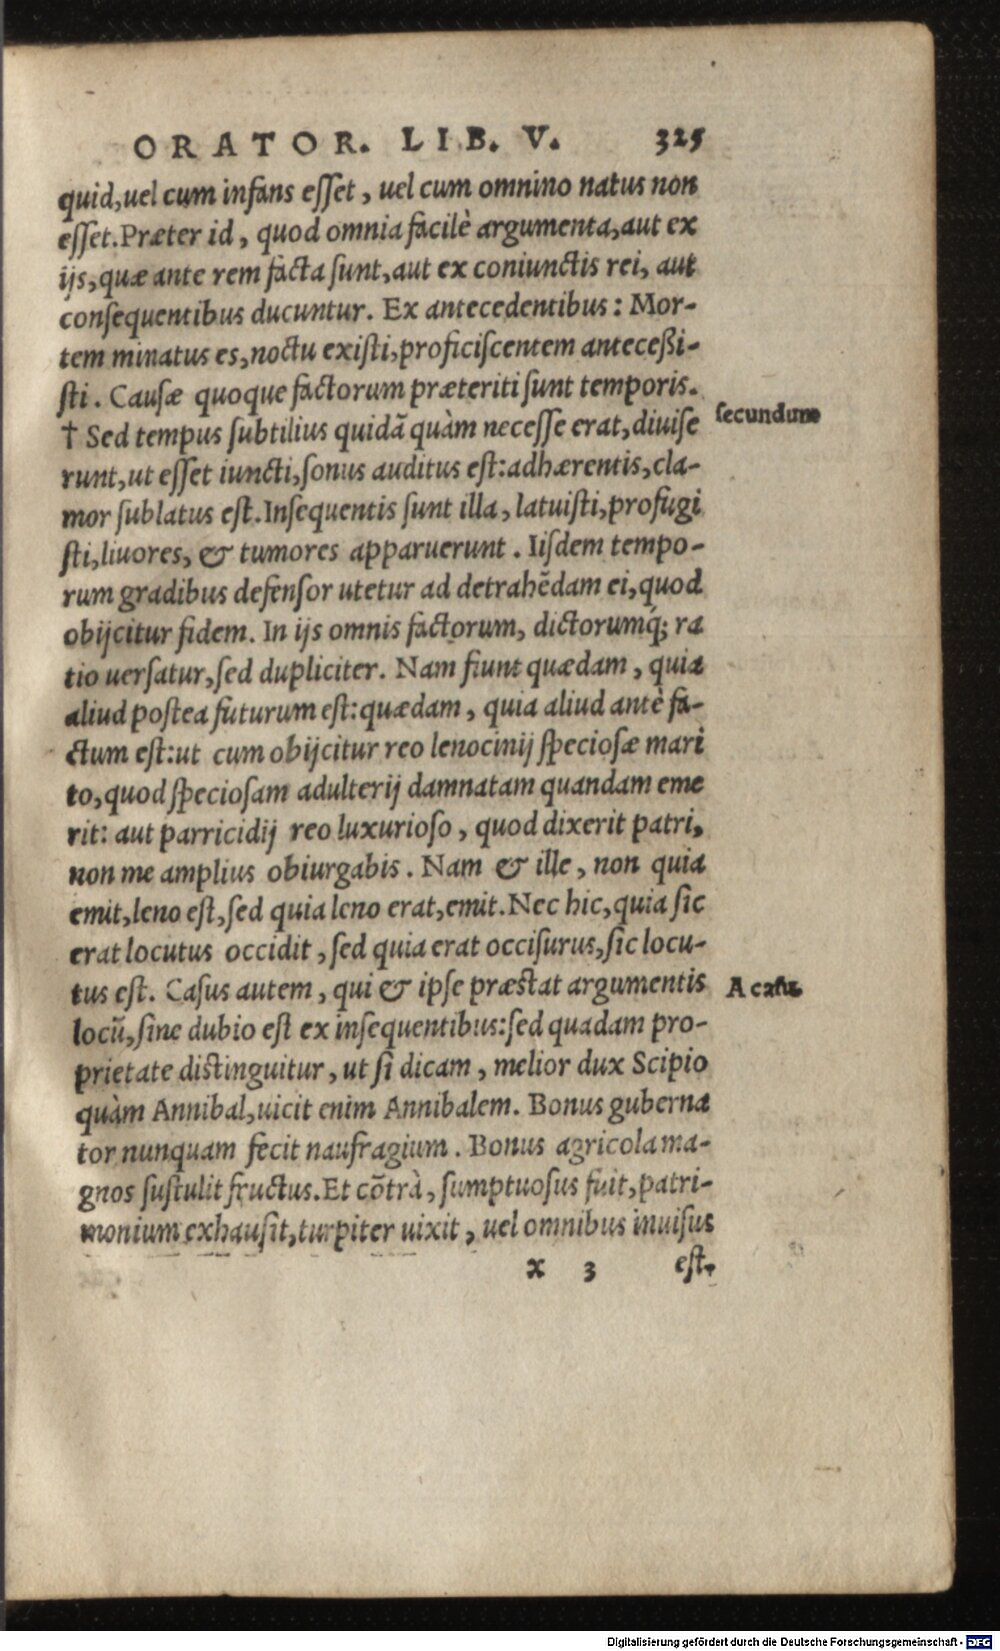 ORATOR. LIB. V. 325
quid,uel cum infans eſſet, uel cum omnino natus non
eſſet.Præter id, quod omnia facilè argumenta,aut ex
ijs,quæ ante rem facta ſunt,aut ex coniunctis rei, aut
conſequentibus ducuntur. Ex antecedentibus: Mor-
tem minatus es,noctu exiſti,proficiſcentem anteceßi-
ſti. Cauſæ quoque factorum præteriti ſunt temporis.
secundum
† Sed tempus ſubtilius quidã quàm neceſſe erat,diuiſe
runt,ut eſſet iuncti,ſonus auditus eſt:adhærentis,cla-
mor ſublatus eſt.Inſequentis ſunt illa, latuiſti,profugi
ſti,liuores, & tumores apparuerunt. Iiſdem tempo-
rum gradibus defenſor utetur ad detrahẽdam ei,quod
obijcitur fidem. In ijs omnis factorum, dictorumq́; ra
tio uerſatur,ſed dupliciter. Nam fiunt quædam, quia
aliud poſtea futurum eſt:quædam, quia aliud antè fa-
ctum eſt:ut cum obijcitur reo lenocinij ſpecioſæ mari
to,quod ſpecioſam adulterij damnatam quandam eme
rit: aut parricidij reo luxurioſo, quod dixerit patri,
non me amplius obiurgabis. Nam & ille, non quia
emit,leno eſt,ſed quia leno erat,emit.Nec hic,quia ſic
erat locutus occidit, ſed quia erat occiſurus,ſic locu-
tus eſt. Caſus autem, qui & ipſe præſtat argumentis
A caſu.
locũ,ſine dubio eſt ex inſequentibus:ſed quadam pro-
prietate diſtinguitur, ut ſi dicam, melior dux Scipio
quàm Annibal,uicit enim Annibalem. Bonus guberna
tor nunquam fecit naufragium. Bonus agricola ma-
gnos ſuſtulit fructus.Et cõtrà, ſumptuoſus fuit,patri-
monium exhauſit,turpiter uixit, uel omnibus inuiſus
x 3 eſt.
Digitalisierung gefördert durch die Deutsche Forschungsgemeinschaft - DFG